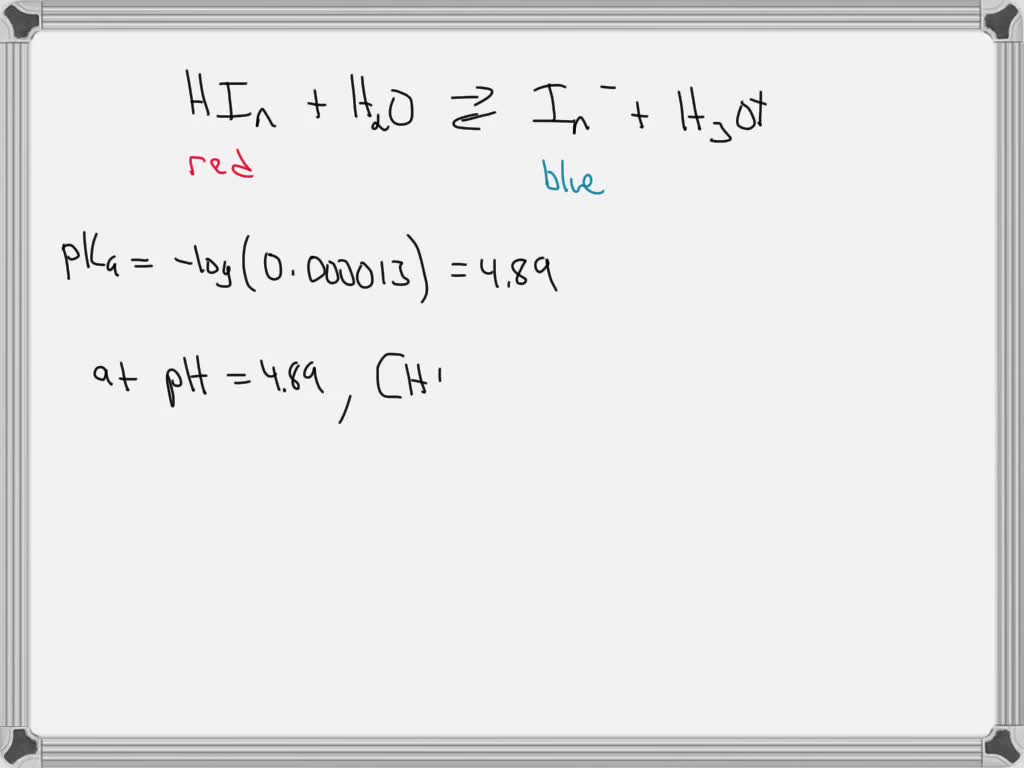 HIn + H₂O ⇄ In⁻ + H₃O⁺
red blue
pKa = -log(0.000013) = 4.89
at pH = 4.89, [H